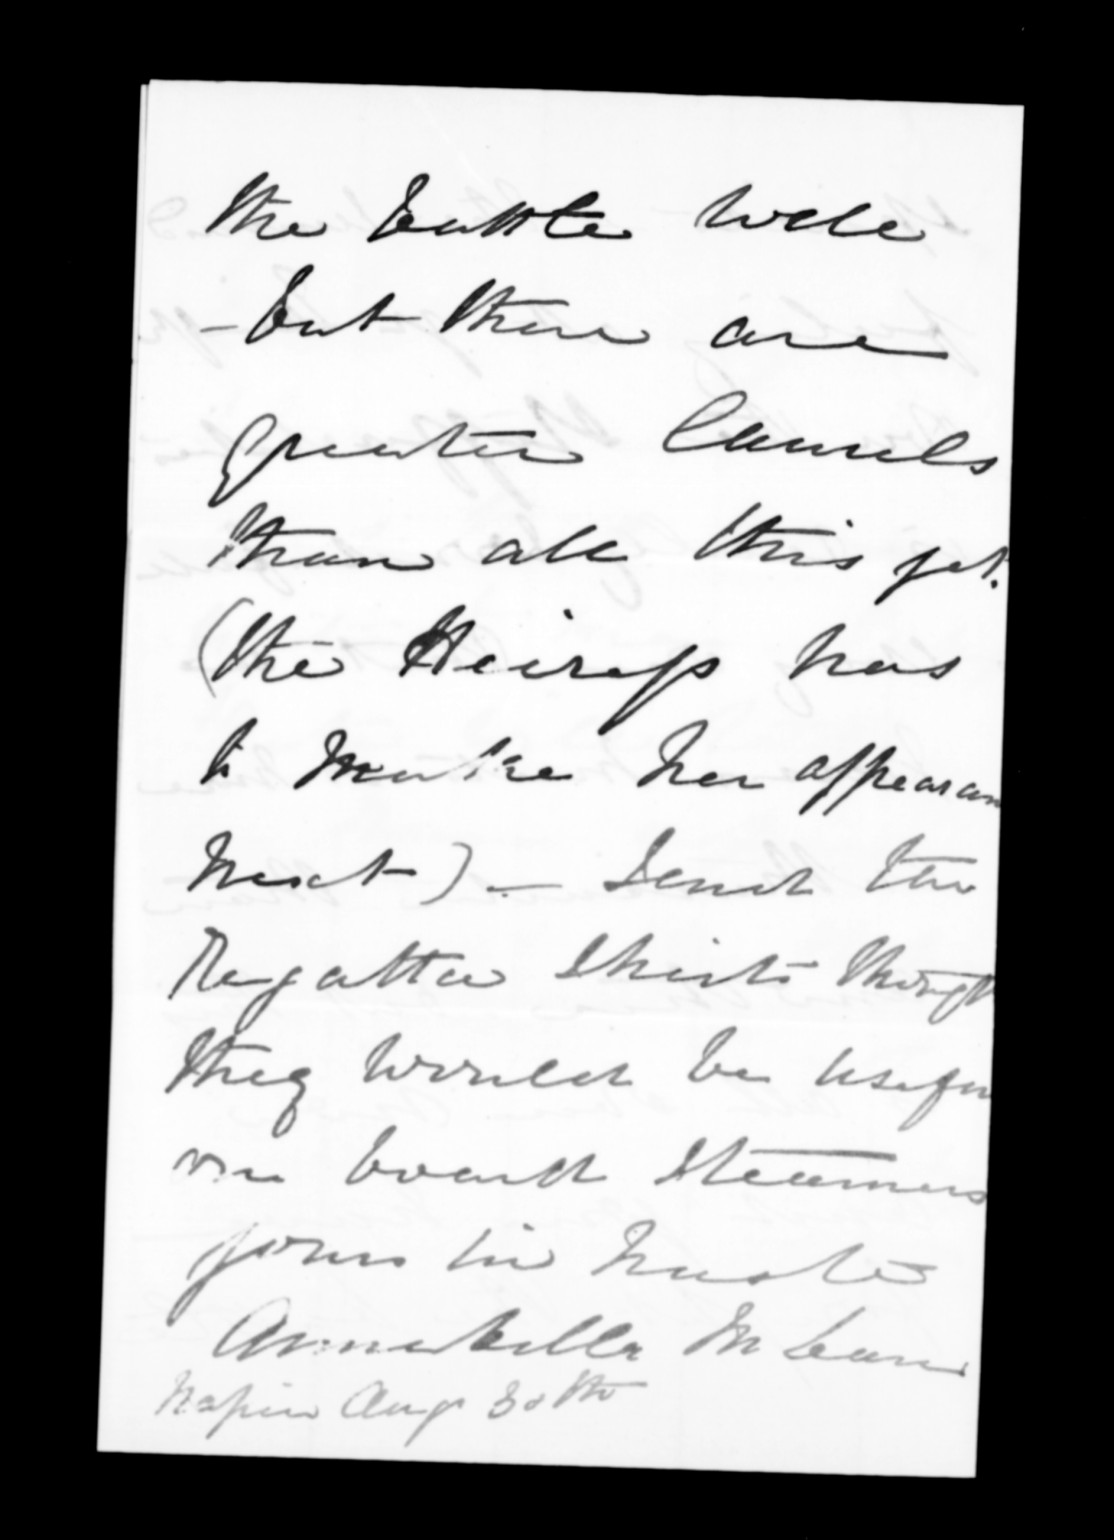 the battle well
- but there are
greater laurels
than all this yet.
(the Heiress has
to make her appearan
next) - Send two
Regatta Shirts thought
they would be usefu
on board Steamers
yours in haste
Annabella McLean
Napier Aug 30th